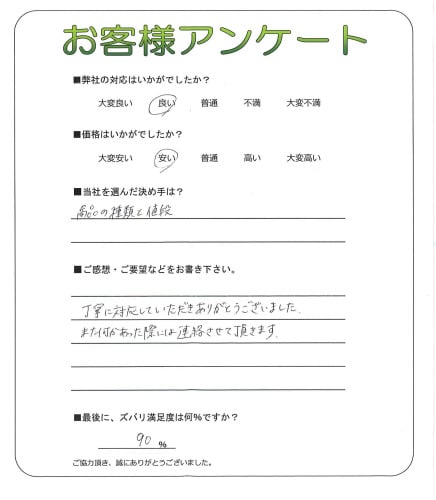 お客様アンケート
■弊社の対応はいかがでしたか？
大変良い 良い 普通 不満 大変不満
■価格はいかがでしたか？
大変安い 安い 普通 高い 大変高い
■当社を選んだ決め手は？
商品の種類と値段
■ご感想・ご要望などをお書き下さい。
丁寧に対応していただきありがとうございました.
また何かあった際には連絡させて頂きます.
■最後に、ズバリ満足度は何%ですか？
90 %
ご協力頂き、誠にありがとうございました。